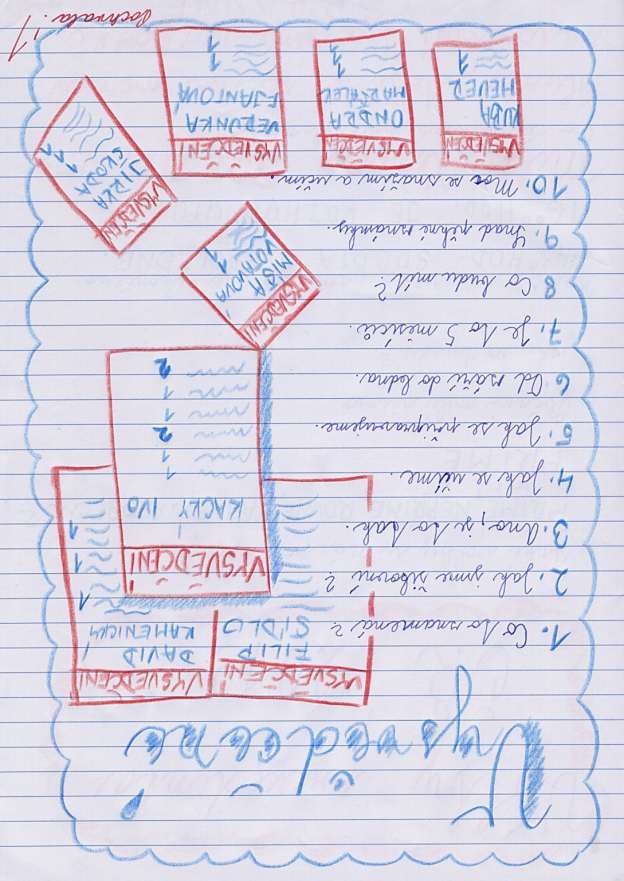 Vysvědčení
1. Co to znamená?
2. Jak jsme šikovní?
3. Ano, je to tak.
4. Jak se učíme.
5. Jak se připravujeme.
6. Od září do ledna.
7. Je to 5 měsíců.
8. Co budu mít?
9. Snad pěkné známky.
10. Moc se snažím a učím.
VYSVĚDČENÍ
FILIP
SÍDLO
VYSVĚDČENÍ
DAVID
KAMENICKÝ
1
1
1
VYSVĚDČENÍ
KACKY IVO
1
1
2
1
1
2
VYSVĚDČENÍ
MIŠA
VOTAVOVÁ
1
VYSVĚDČENÍ
JIRKA
ŠKODA
1
1
VYSVĚDČENÍ
KUBA
HEVER
1
VYSVĚDČENÍ
ONDRA
MARŠÁLEK
1
1
VYSVĚDČENÍ
VERUNKA
FJANTOVÁ
1
1
Pochvala! 1